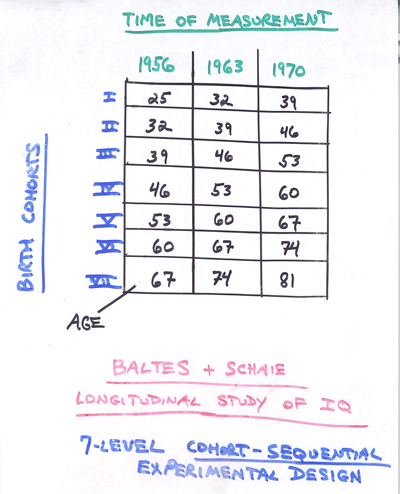 TIME OF MEASUREMENT
1956 1963 1970
I 25 32 39
II 32 39 46
III 39 46 53
IV 46 53 60
V 53 60 67
VI 60 67 74
VII 67 74 81
BIRTH COHORTS
AGE
BALTES + SCHAIE
LONGITUDINAL STUDY OF IQ
7-LEVEL COHORT-SEQUENTIAL
EXPERIMENTAL DESIGN